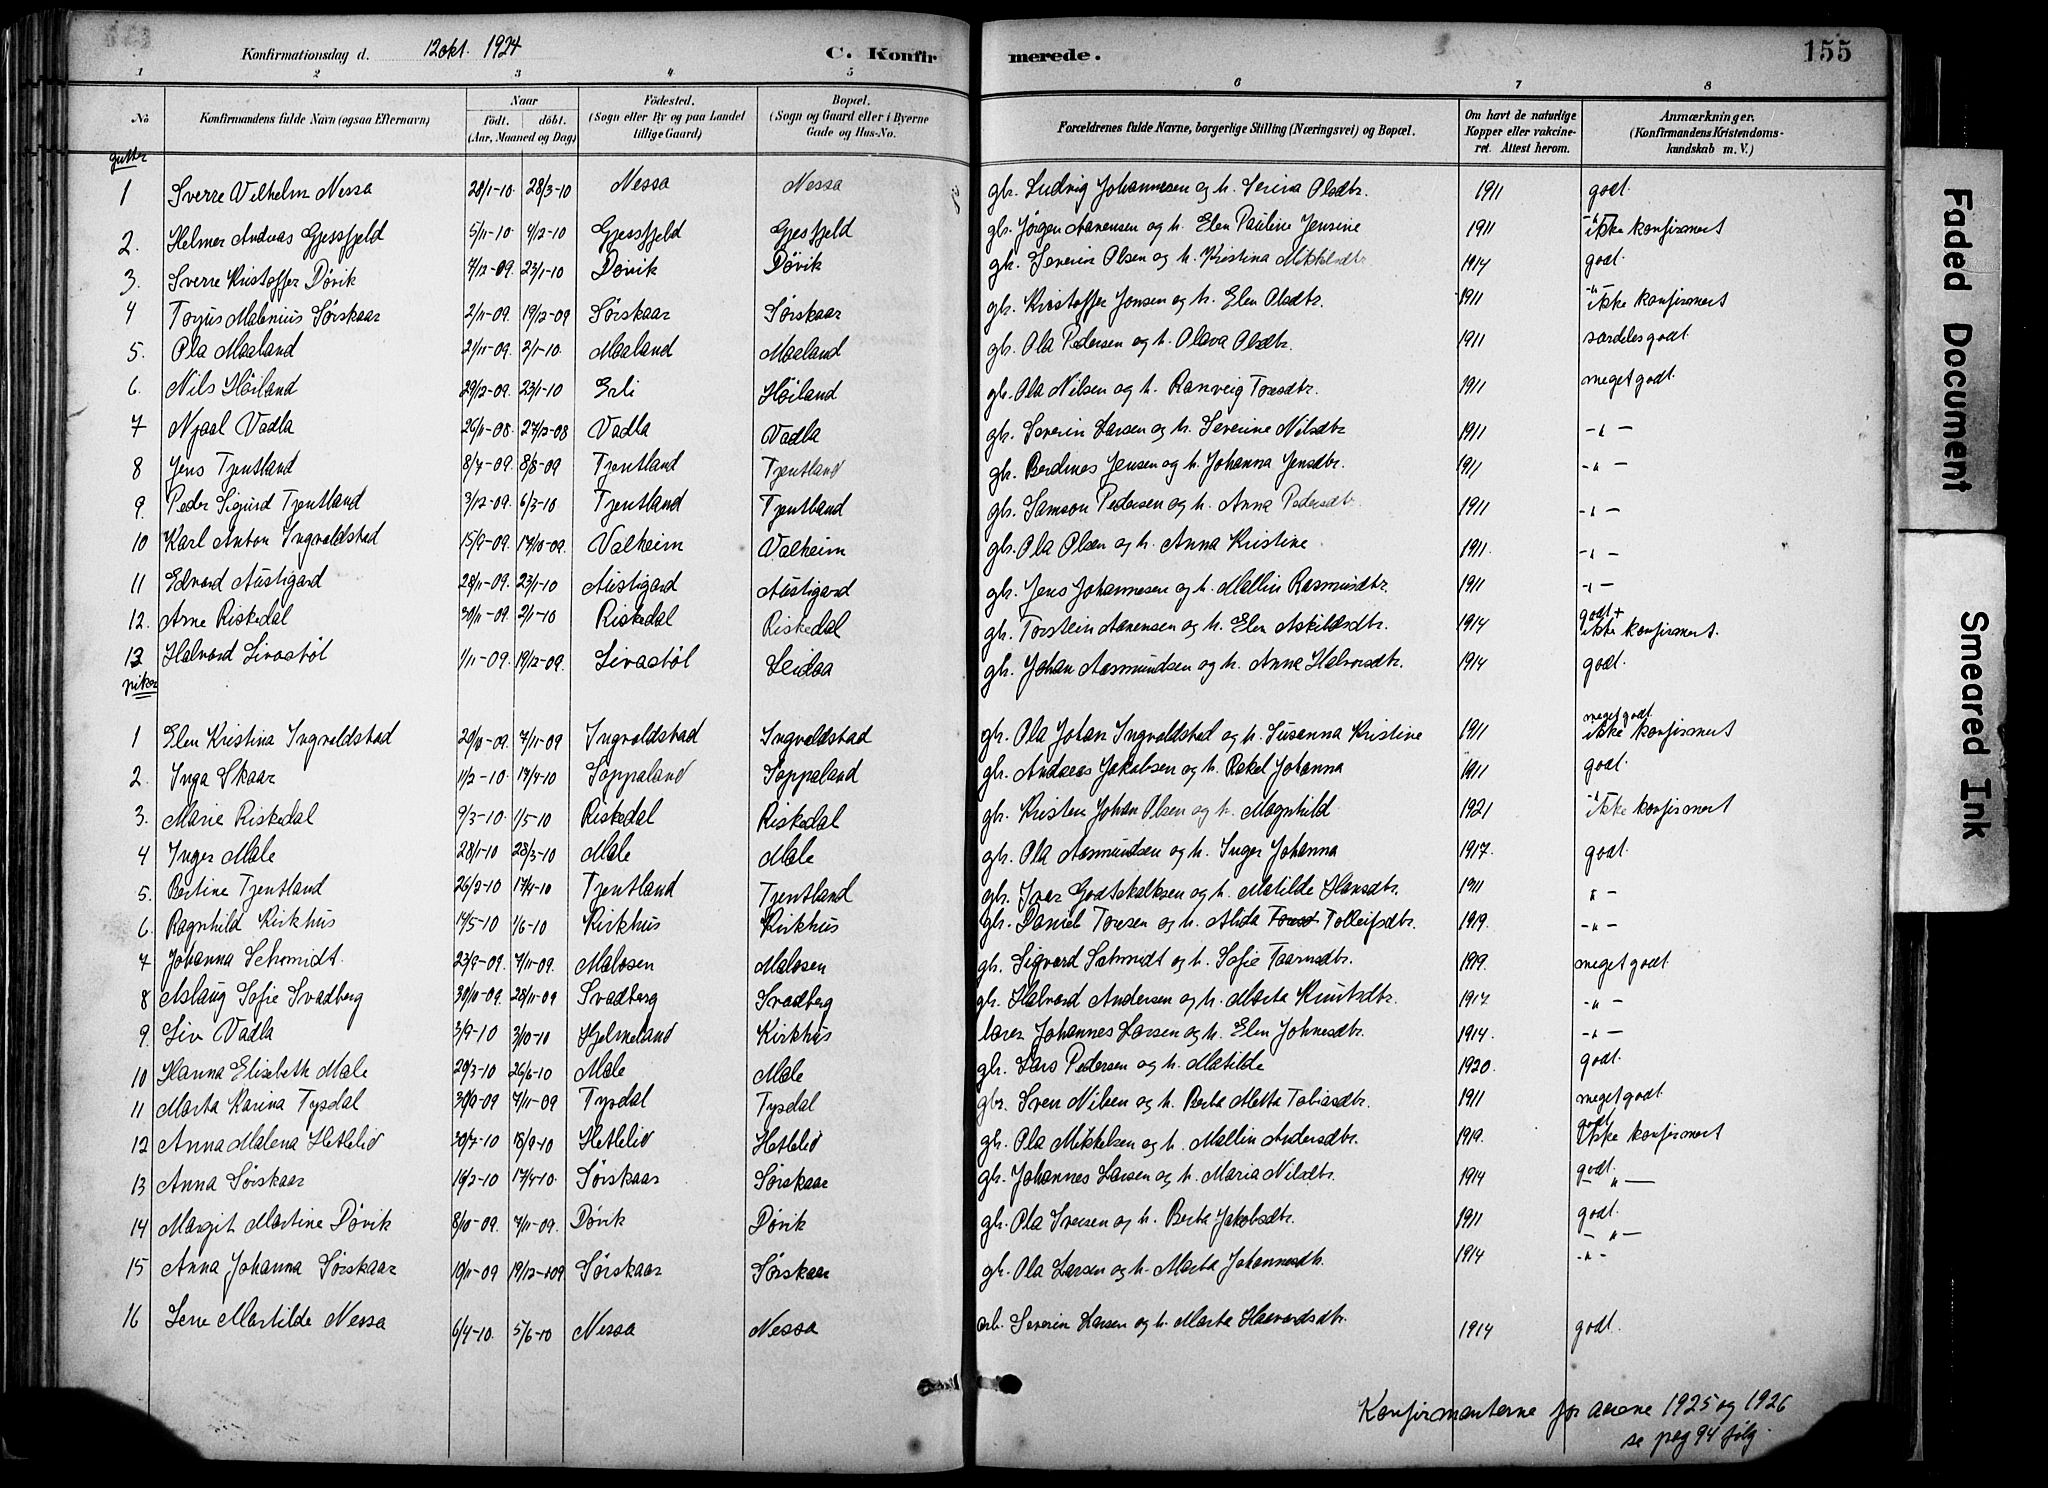 Konfirmationsdag d. 12 okt. 1924
C. Konfirmerede. 155
1 2 3 4 5 6 7 8
No
Konfirmandens fulde Navn (ogsaa Efternavn)
Naar
födt. döbt.
(Aar, Maaned og Dag)
Födested.
(Sogn eller By og paa Landet
tillige Gaard)
Bopæl.
(Sogn og Gaard eller i Byerne
Gade og Hus-No.
Forældrenes fulde Navne, borgerlige Stilling (Næringsvei) og Bopæl.
Om havt de naturlige
Kopper eller vakcine-
ret. Attest herom.
Anmærkninger.
(Konfirmandens Kristendoms-
kundskab m. V.)
gutter
1 Sverre Vilhelm Nessa 28/1-10 28/3-10 Nessa Nessa gbr. Ludvig Johannesen og h. Serina Olsdtr. 1911 godt.
2. Helmer Andreas Gjessfjeld 5/11-10 4/12-10 Gjessfjeld Gjesfjeld gbr. Jørgen Aanensen og h. Elen Pauline Jensine 1911 -"- ikke konfirmert
3. Sverre Kristoffer Dövik 7/12-09 23/1-10 Dövik Dövik gbr. Severin Olsen og h. Kristina Mikkelsdtr 1914 godt.
4 Torjus Malenius Sørskaar 2/11-09. 19/12-09 Sørskaar Sørskaar gbr. Kristoffer Jonsen og h. Elen Olsdtr. 1911 -"- ikke konfirmert
5. Ola Maaland 27/11-09. 2/1-10. Maaland Maaland gbr. Ola Pedersen og h. Olava Olsdtr. 1911 særdeles godt.
6. Nils Höiland 29/12-09 23/1-10 Erli Höiland gbr. Ola Nilsen og h. Ranveig Toresdtr. 1911 meget godt.
7 Njaal Vadla 26/11-08. 27/12-08 Vadla Vadla gbr. Severin Larsen og h. Severine Nilsdtr 1911 -"-
8 Jens Tjentland 8/7-09. 8/8-09 Tjentland Tjentland gbr. Berdines Jensen og h. Johanna Jensdtr. 1911 -"-
9. Peder Sigurd Tjentland 3/12-09. 6/3-10 Tjentland Tjentland gbr. Samson Pedersen og h. Anna Pedersdtr 1911 -"-
10 Karl Anton Ingvaldstad 15/9-09. 17/10-09. Valheim Valheim gbr. Ola Olsen og h. Anna Kristine 1911. -"-
11 Edvard Austigard 28/11-09. 23/1-10 Austigard Austigard gbr. Jens Johannesen og h. Mallin Rasmusdtr. 1911 -"-
12. Arne Riskedal 30/11-09. 2/1-10 Riskedal Riskedal gbr. Torstein Aanensen og h. Elen Askildsdtr. 1914 godt + ikke konfirmert.
13 Halvard Livastöl 1/11-09. 19/12-09. Livastöl Leidaa gbr. Johan Aasmundsen og h. Anna Halvorsdtr. 1914 godt.
piker
1 Elen Kristina Ingvaldstad 20/10-09. 7/11-09 Ingvaldstad Ingvaldstad gbr. Ola Johan Ingvaldstad og h. Susanna Kristine 1911 meget godt ikke konfirmert
2. Inga Skaar 11/2-10. 17/4-10 Soppaland Soppaland gbr. Andreas Jakobsen og h. Rakel Johanna 1911 godt.
3. Marie Riskedal 9/3-10. 1/5-10 Riskedal Riskedal gbr. Kristen Johan Olsen og h. Magnhild 1921 -"- ikke konfirmert
4 Inger Mæle 28/1-10 28/3-10 Mæle Mæle gbr. Ola Aasmundsen og h. Inger Johanna 1917. godt.
5. Bertine Tjentland 26/2-10 17/4-10 Tjentland Tjentland gbr. Ivar Godtskalksen og h. Matilde Hansdtr. 1911 " -
6. Ragnhild Kirkhus 17/5-10 1/6-10 Kirkhus Kirkhus gbr. Daniel Toresen og h. Alida Tollefsdtr. 1919. -"-
7 Johanna Schmidt. 23/9-09. 7/11-09. Maløsen Maløsen gbr. Sigvard Schmidt og h. Sofie Taarnsdtr. 1919. meget godt.
8 Aslaug Sofie Svadberg 30/10-09. 28/11-09 Svadberg Svadberg gbr. Halvard Andersen og h. Marta Knutsdtr. 1914 -"-
9. Liv Vadla 3/9-10 3/10-10 Hjelmeland Kirkhus lærer Johannes Larsen og h. Elen Johnesdtr. 1914. -"-
10 Hanna Elisabeth Mæle 20/3-10 26/6-10 Mæle Mæle gbr. Lars Pedersen og h. Matilde 1920. godt.
11 Marta Karina Tysdal 30/9-09 7/11-09 Tysdal Tysdal gbr. Sven Nilsen og h. Berta Metta Tobiasdtr. 1911 meget godt.
12 Anna Malena Hetlelid 30/7-10 18/9-10 Hetlelid Hetlelid gbr. Ola Mikkelsen og h. Mallin Andersdtr. 1919. godt. ikke konfirmert
13 Anna Sørskaar 16/2-10 17/4-10. Sørskaar Sørskaar gbr. Johannes Larsen og h. Maria Nilsdtr. 1914 godt. -"-
14 Margit Martine Dövik 8/10-09. 7/11-09. Dövik Dövik gbr. Ola Iversen og h. Berta Jakobsdtr. 1911 godt. -"-
15 Anna Johanna Sørskaar 10/11-09 19/12-09 Sørskaar Sørskaar gbr. Ola Larsen og h. Marta Johannesdtr. 1914 -"-
16 Lene Martilde Nessa 6/4-10. 5/6-10 Nessa Nessa arb. Severin Larsen og h. Marta Haavardsdtr. 1914 godt.
Konfirmanterne for aarene 1925 og 1926
se pag 94 følg.
Faded Document
Smeared Ink